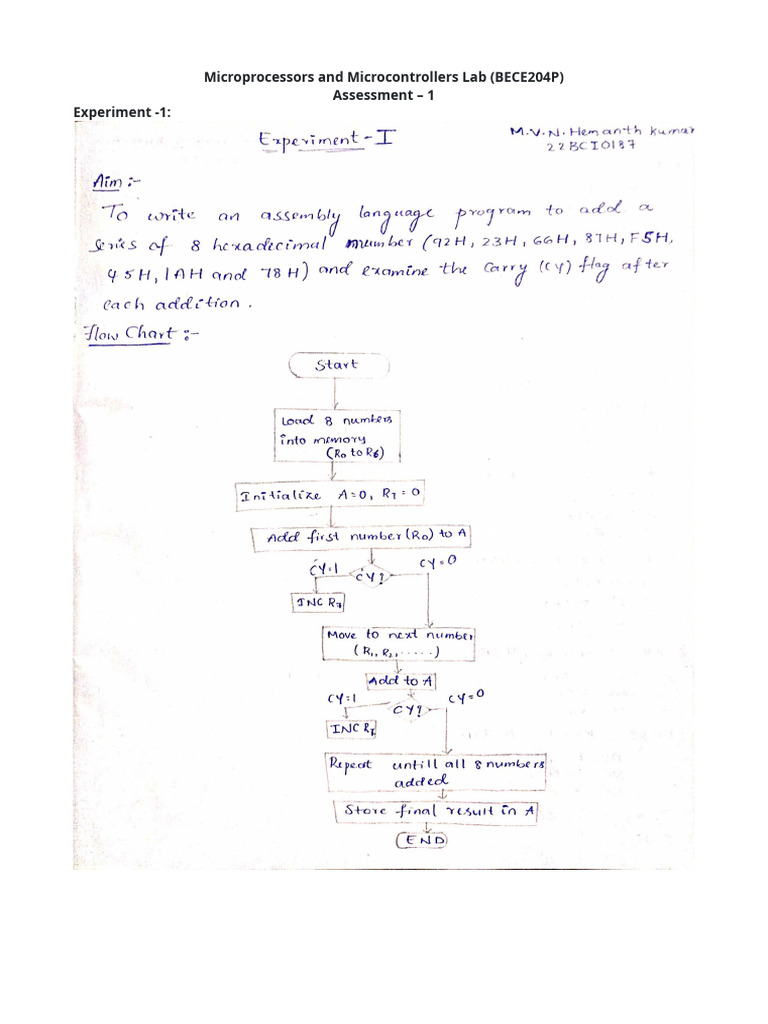 Microprocessors and Microcontrollers Lab (BECE204P)
Assessment – 1
Experiment -1:
Experiment - I
M.V.N. Hemanth kumar
22BCI0187
Aim :-
To write an assembly language program to add a
series of 8 hexadecimal number (92H, 23H, 66H, 87H, F5H,
45H, 1AH and 78H) and examine the Carry (CY) flag after
each addition.
Flow Chart :-
Start
Load 8 numbers
into memory
(R0 to R6)
Initialize A=0, R7=0
Add first number (R0) to A
CY=1
CY?
CY=0
INC R7
Move to next number
(R1, R2, .....)
Add to A
CY=1
CY?
CY=0
INC R7
Repeat untill all 8 numbers
added
Store final result in A
END